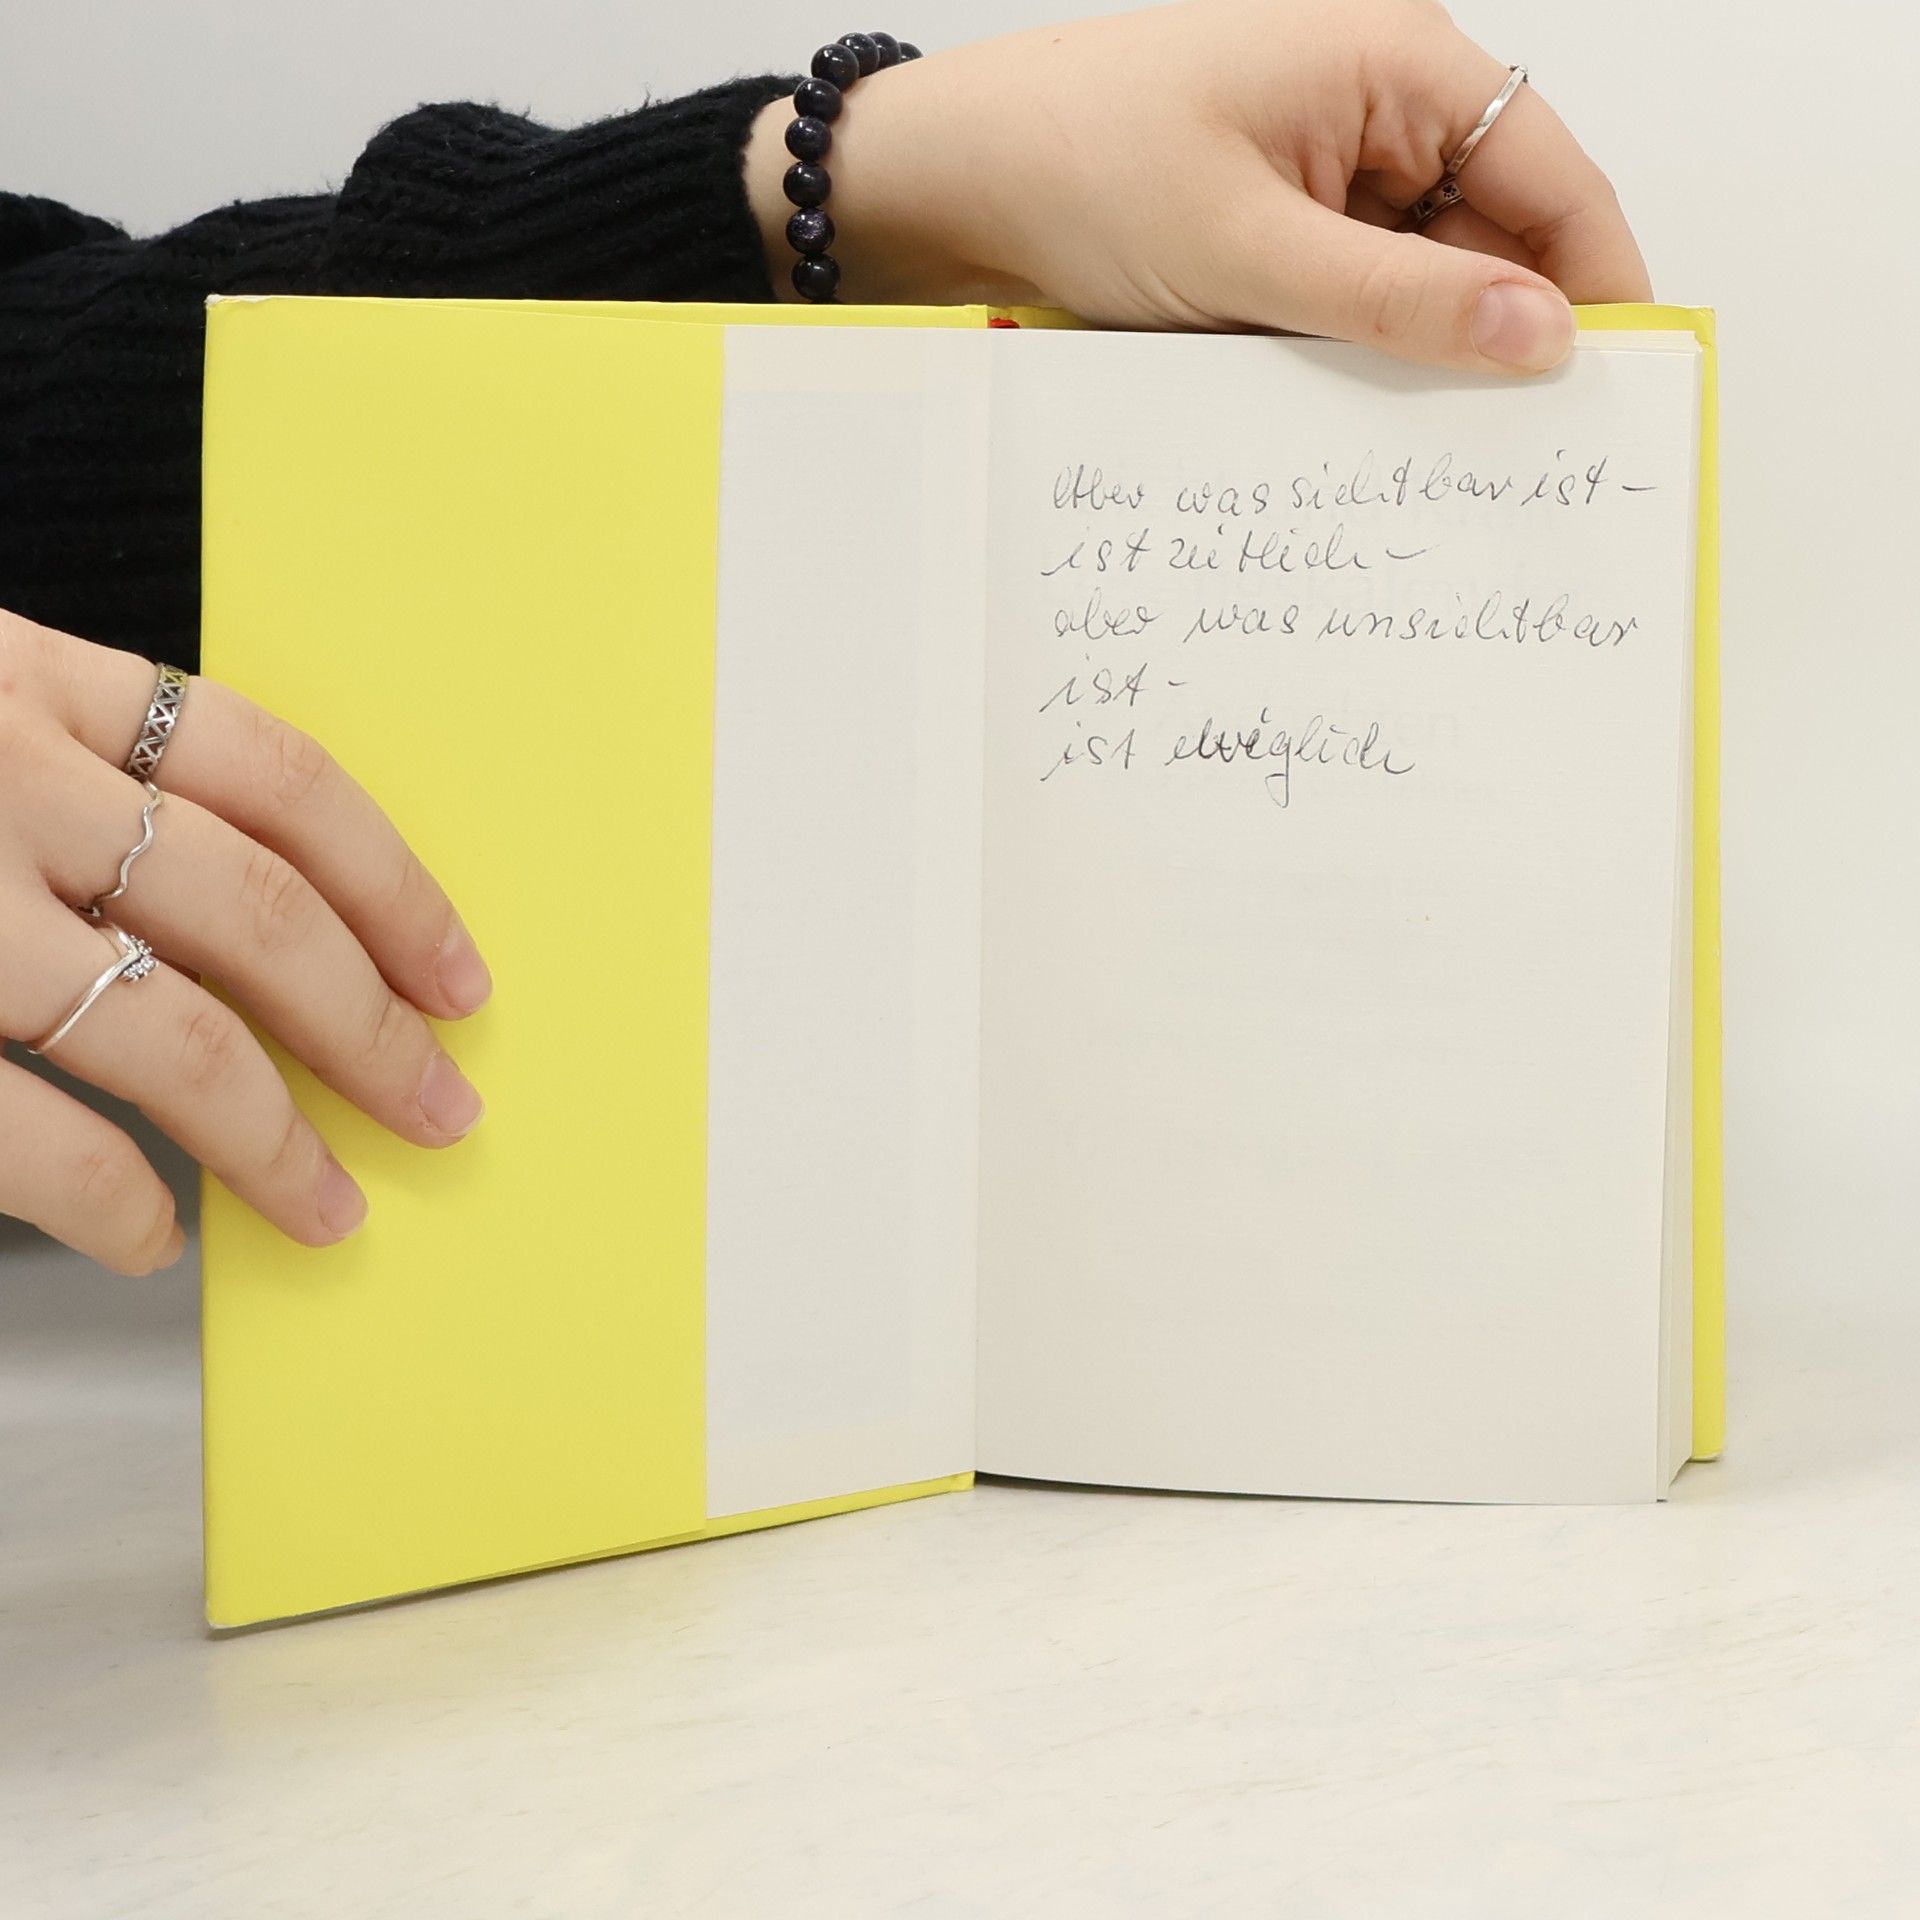 Aber was sichtbar ist -
ist zeitlich -
aber was unsichtbar
ist -
ist ewiglich